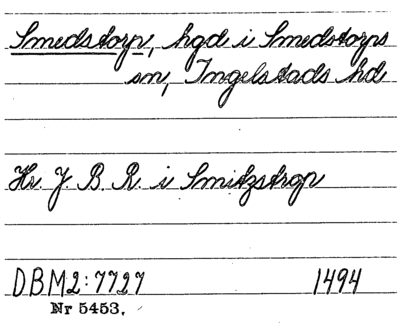 Smedstorp, hgd i Smedstorps
sn, Ingelstads hd
Hr. J. B. R. i Smitzstrop
DBM2:7727 1494
Nr 5453.